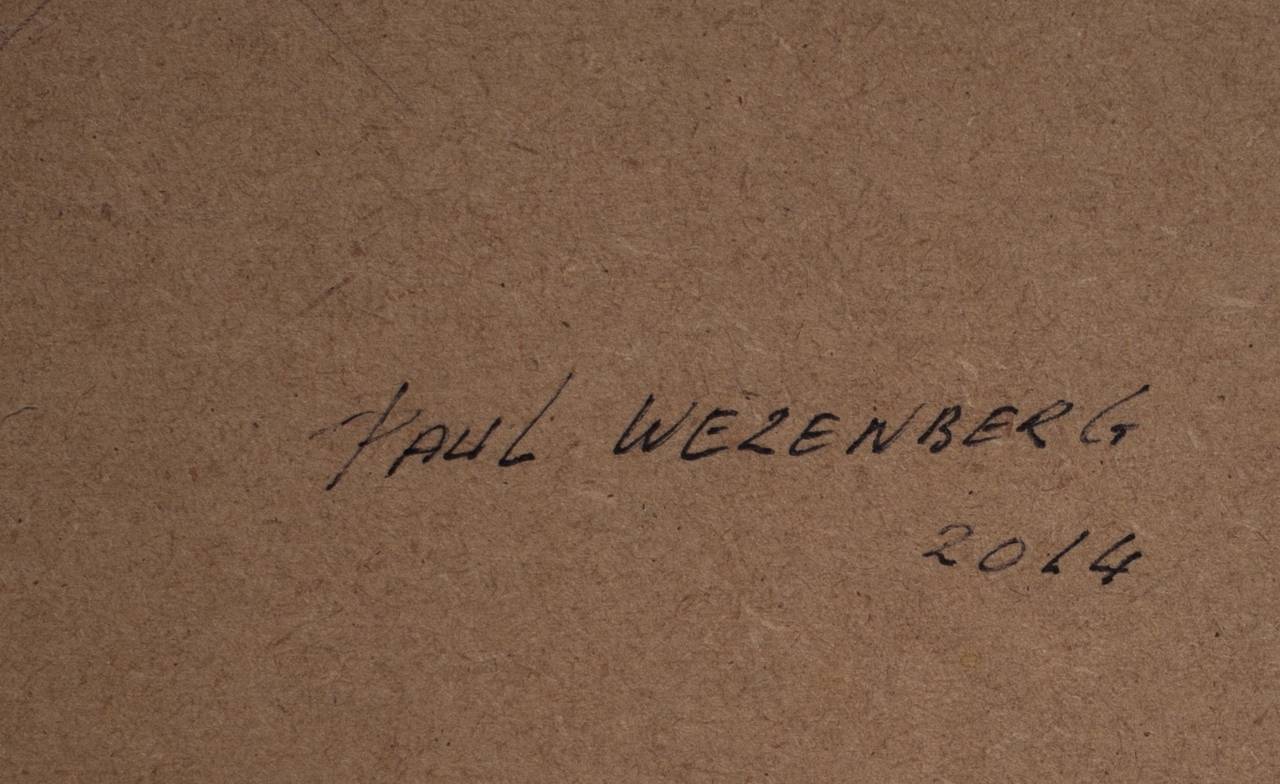 PAUL WEZENBERG
2014